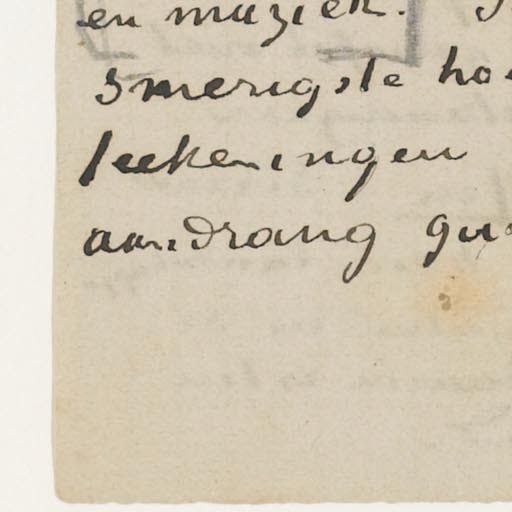 en muziek.
smerigste ho
teekeningen
aandrang gu